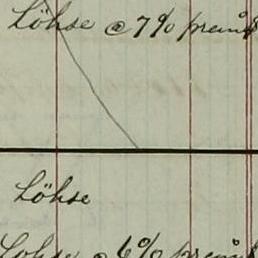 Löhse @ 7% prem
Löhse
Löhse @ 6% prem